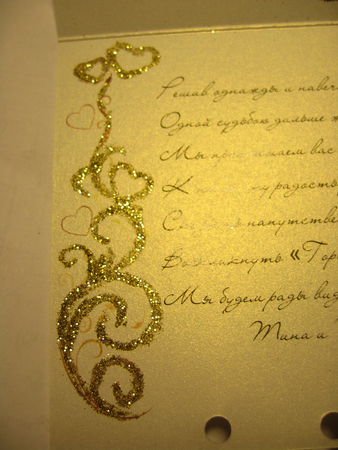 Решав однажды и навеч
Одной судьбою дальше ж
Мы приглашаем вас
К радость
напутстве
Воскликнуть «Гор
Мы будем рады вид
Тина и